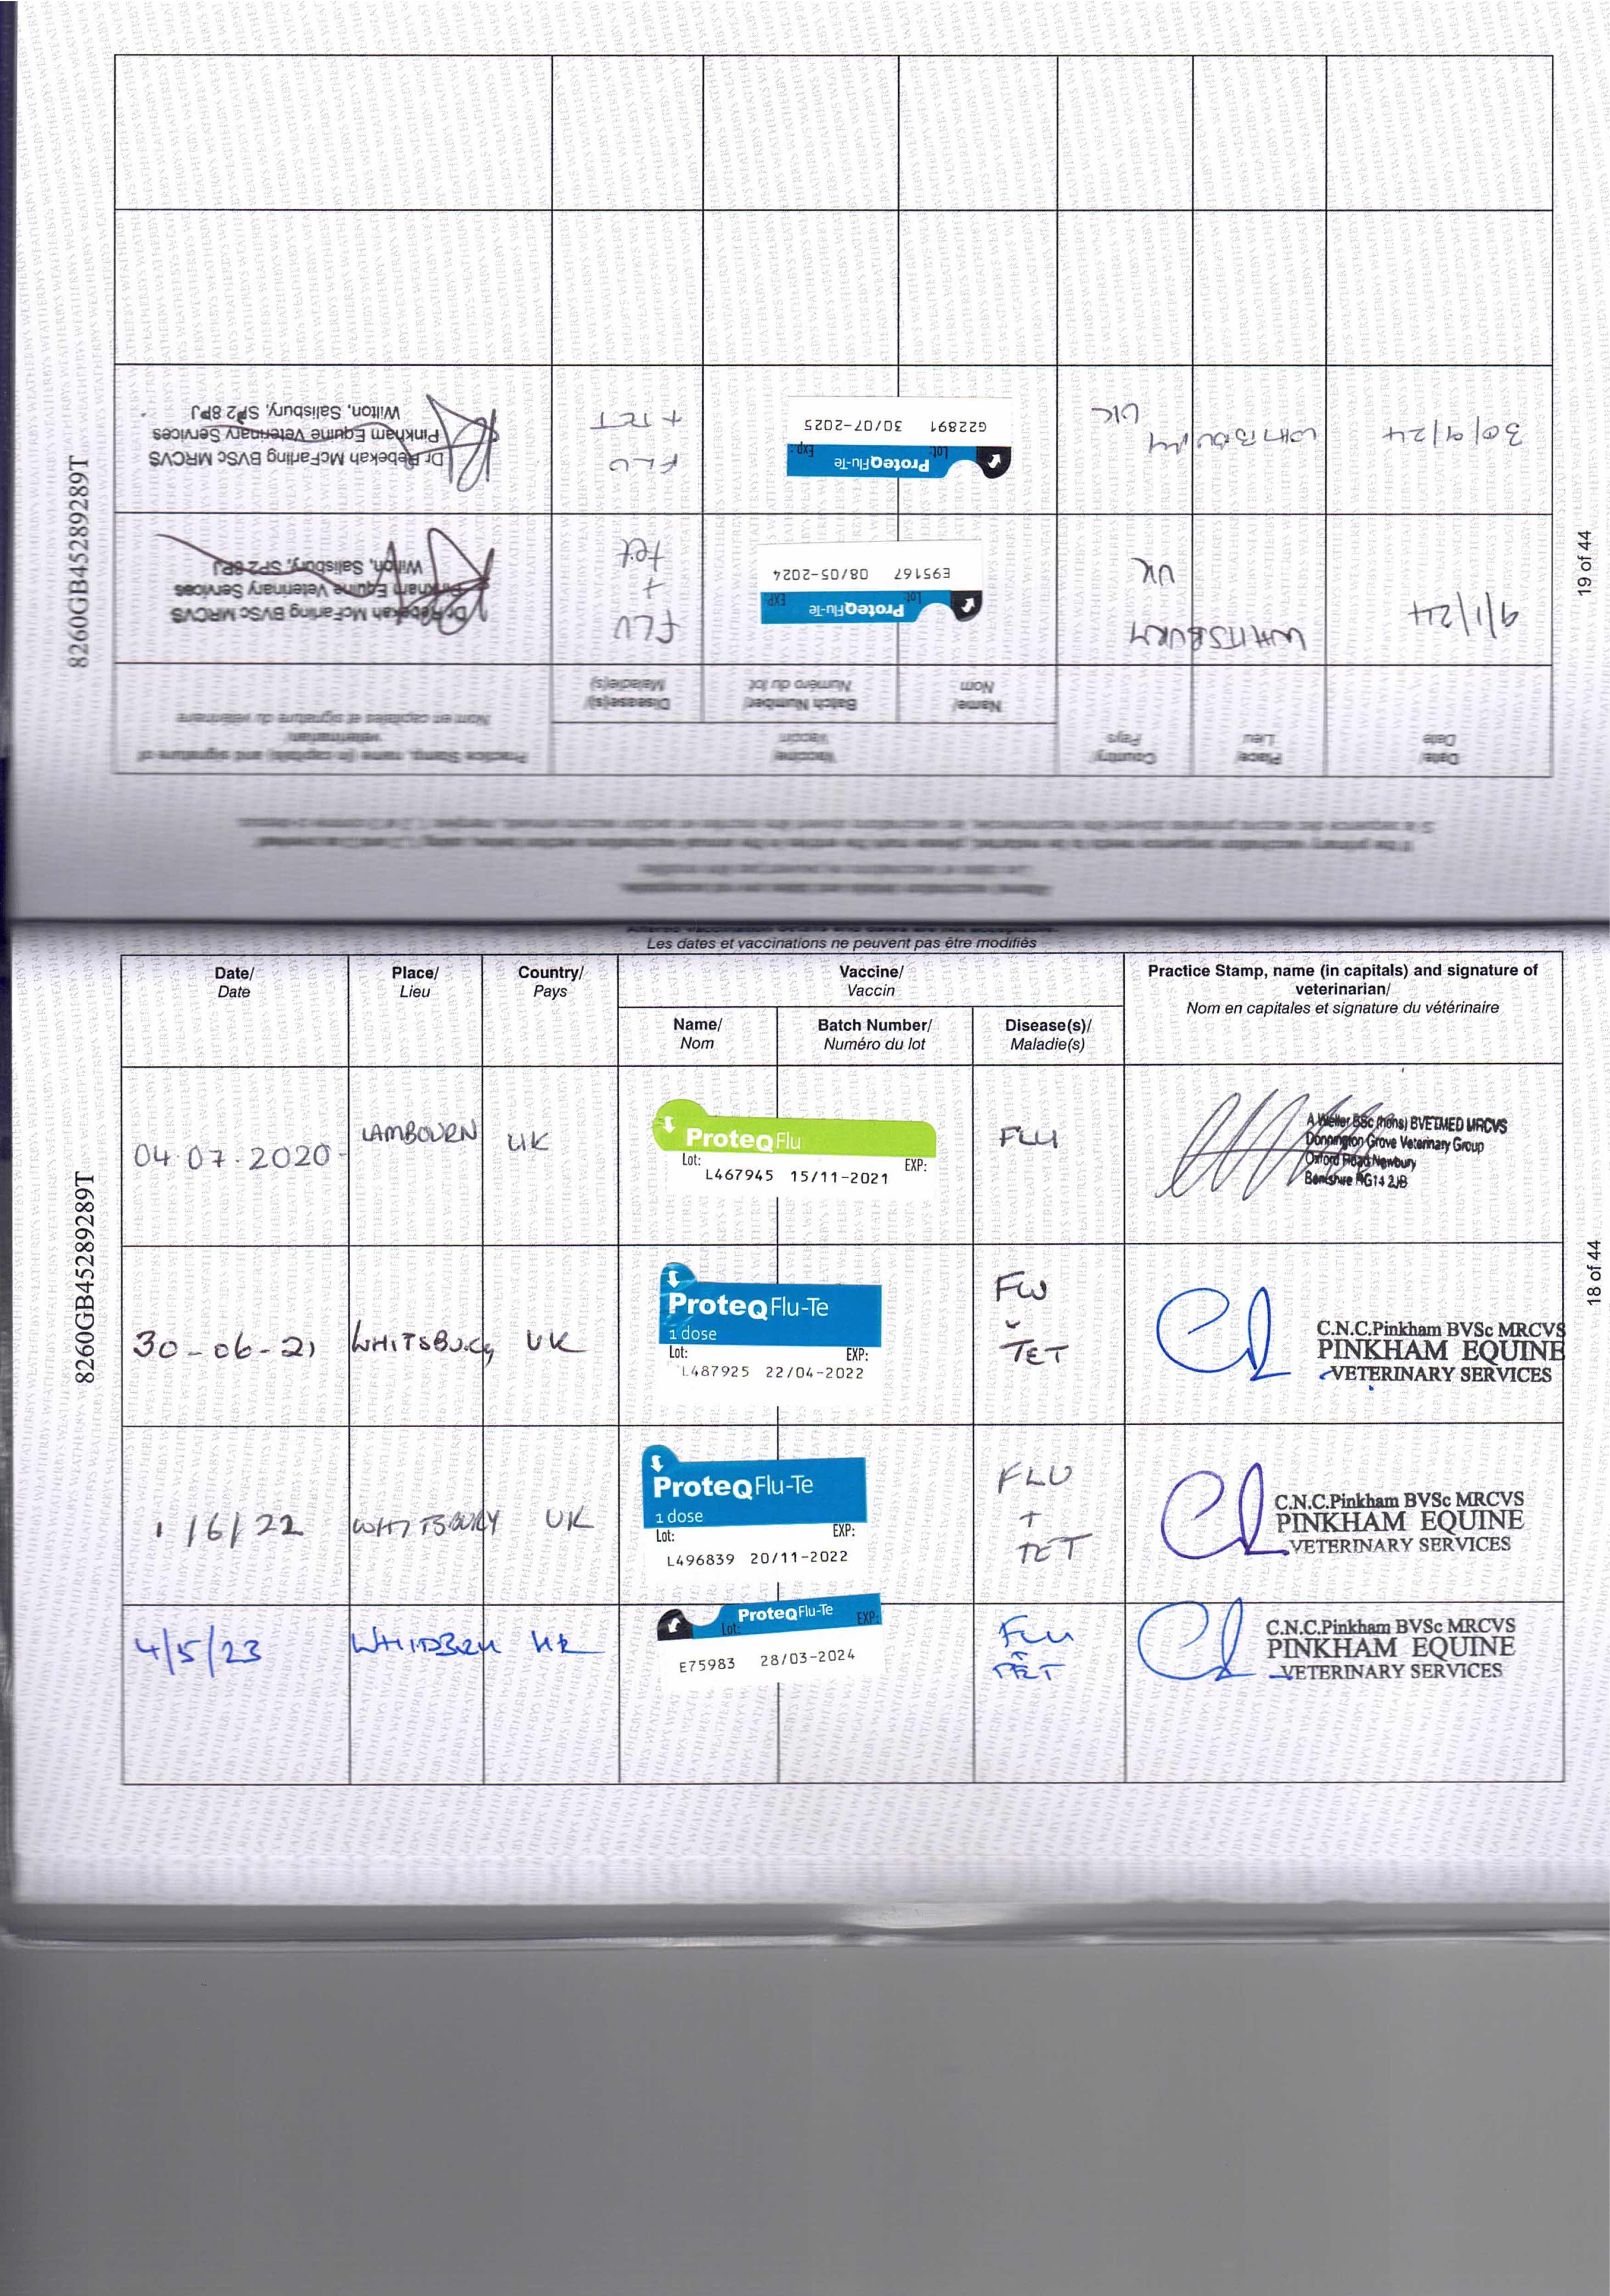 8260GB45289289T
18 of 44
Les dates et vaccinations ne peuvent pas être modifiés
Date/
Date
Place/
Lieu
Country/
Pays
Vaccine/
Vaccin
Name/
Nom
Batch Number/
Numéro du lot
Disease(s)/
Maladie(s)
Practice Stamp, name (in capitals) and signature of
veterinarian/
Nom en capitales et signature du vétérinaire
04.07.2020
LAMBOURN
UK
ProteqFlu
Lot: EXP:
L467945 15/11-2021
FLU
A Weller BSc (hons) BVETMED MRCVS
Donnington Grove Veterinary Group
Oxford Road Newbury
Berkshire RG14 2JB
30-06-21
WHITSBURY
UK
ProteqFlu-Te
1 dose
Lot: EXP:
L487925 22/04-2022
FLU
TET
C.N.C.Pinkham BVSc MRCVS
PINKHAM EQUINE
VETERINARY SERVICES
1/6/22
WHITSBURY
UK
ProteqFlu-Te
1 dose
Lot: EXP:
L496839 20/11-2022
FLU
+
TET
C.N.C.Pinkham BVSc MRCVS
PINKHAM EQUINE
VETERINARY SERVICES
4/5/23
UK
ProteqFlu-Te
Lot: EXP:
E75983 28/03-2024
FLU
TET
C.N.C.Pinkham BVSc MRCVS
PINKHAM EQUINE
VETERINARY SERVICES
8260GB45289289T
19 of 44
Date/
Date
Place/
Lieu
Country/
Pays
Vaccine/
Vaccin
Name/
Nom
Batch Number/
Numéro du lot
Disease(s)/
Maladie(s)
Practice Stamp, name (in capitals) and signature of
veterinarian/
Nom en capitales et signature du vétérinaire
9/1/24
WHITSBURY
UK
ProteqFlu-Te
Lot: EXP:
E95167 08/05-2024
FLU
+
tet
Dr Rebekah McFarling BVSc MRCVS
Pinkham Equine Veterinary Services
Wilton, Salisbury, SP2 8PJ
30/9/24
WHITSBURY
UK
ProteqFlu-Te
Lot: Exp:
G22891 30/07-2025
FLU
+ TET
Dr Rebekah McFarling BVSc MRCVS
Pinkham Equine Veterinary Services
Wilton, Salisbury, SP2 8PJ